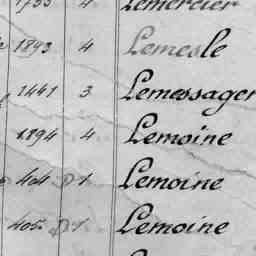 1755 4 Lemercier
1893 4 Lemesle
1441 3 Lemessager
1894 4 Lemoine
404 D 1 Lemoine
405 D 1 Lemoine